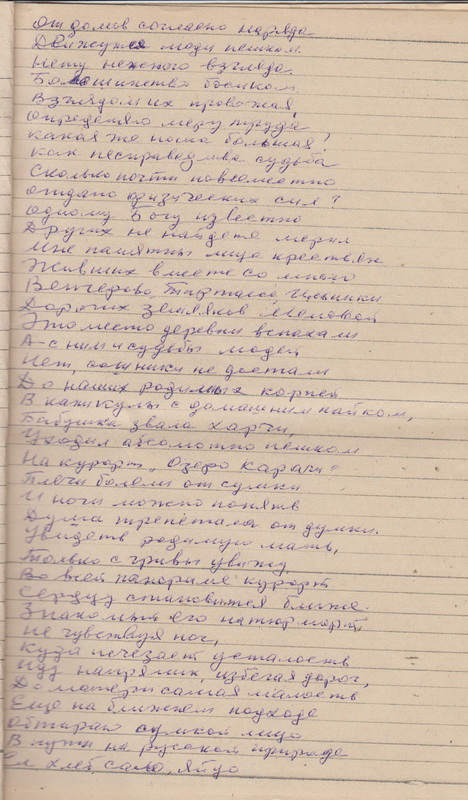 От домов согласно наряда
Движутся люди пешком.
Нету нежного взгляда
Большинство босиком
Взглядом их провожая,
Определяю меру труда
Какая же ноша большая!
Как несправедлива судьба
Сколько почти повсеместно
отдано физических сил?
Одному Богу известно
Других не найдете мерил
Мне памятны лица крестьян
Живших вместе со мною
Венгерово, Тартасса,
Дорогих земляков Меновой
Это место деревни вспахали
А с ним и судьбы людей
Нет, сошники не достали
До наших родимых корней
В каникулы с домашним пайком,
Бабушка звала харчи,
Уходил абсолютно пешком
На курорт "Озеро Карачи"
Плечи болели от сумки
И ночи можно понять
Душа трепетала от думки.
Увидеть родимую мать,
Только с гривы увижу
Во всей панораме курорт
Сердцу становится ближе.
Знакомый его натюрморт,
Не чувствуя ног,
Куда исчезает усталость
Иду напрямик, избегая дорог,
До матери самая малость
Еще на ближнем подходе
Обтираю сумкой лицо
В пути на русской природе
Ел хлеб, сало, яйцо